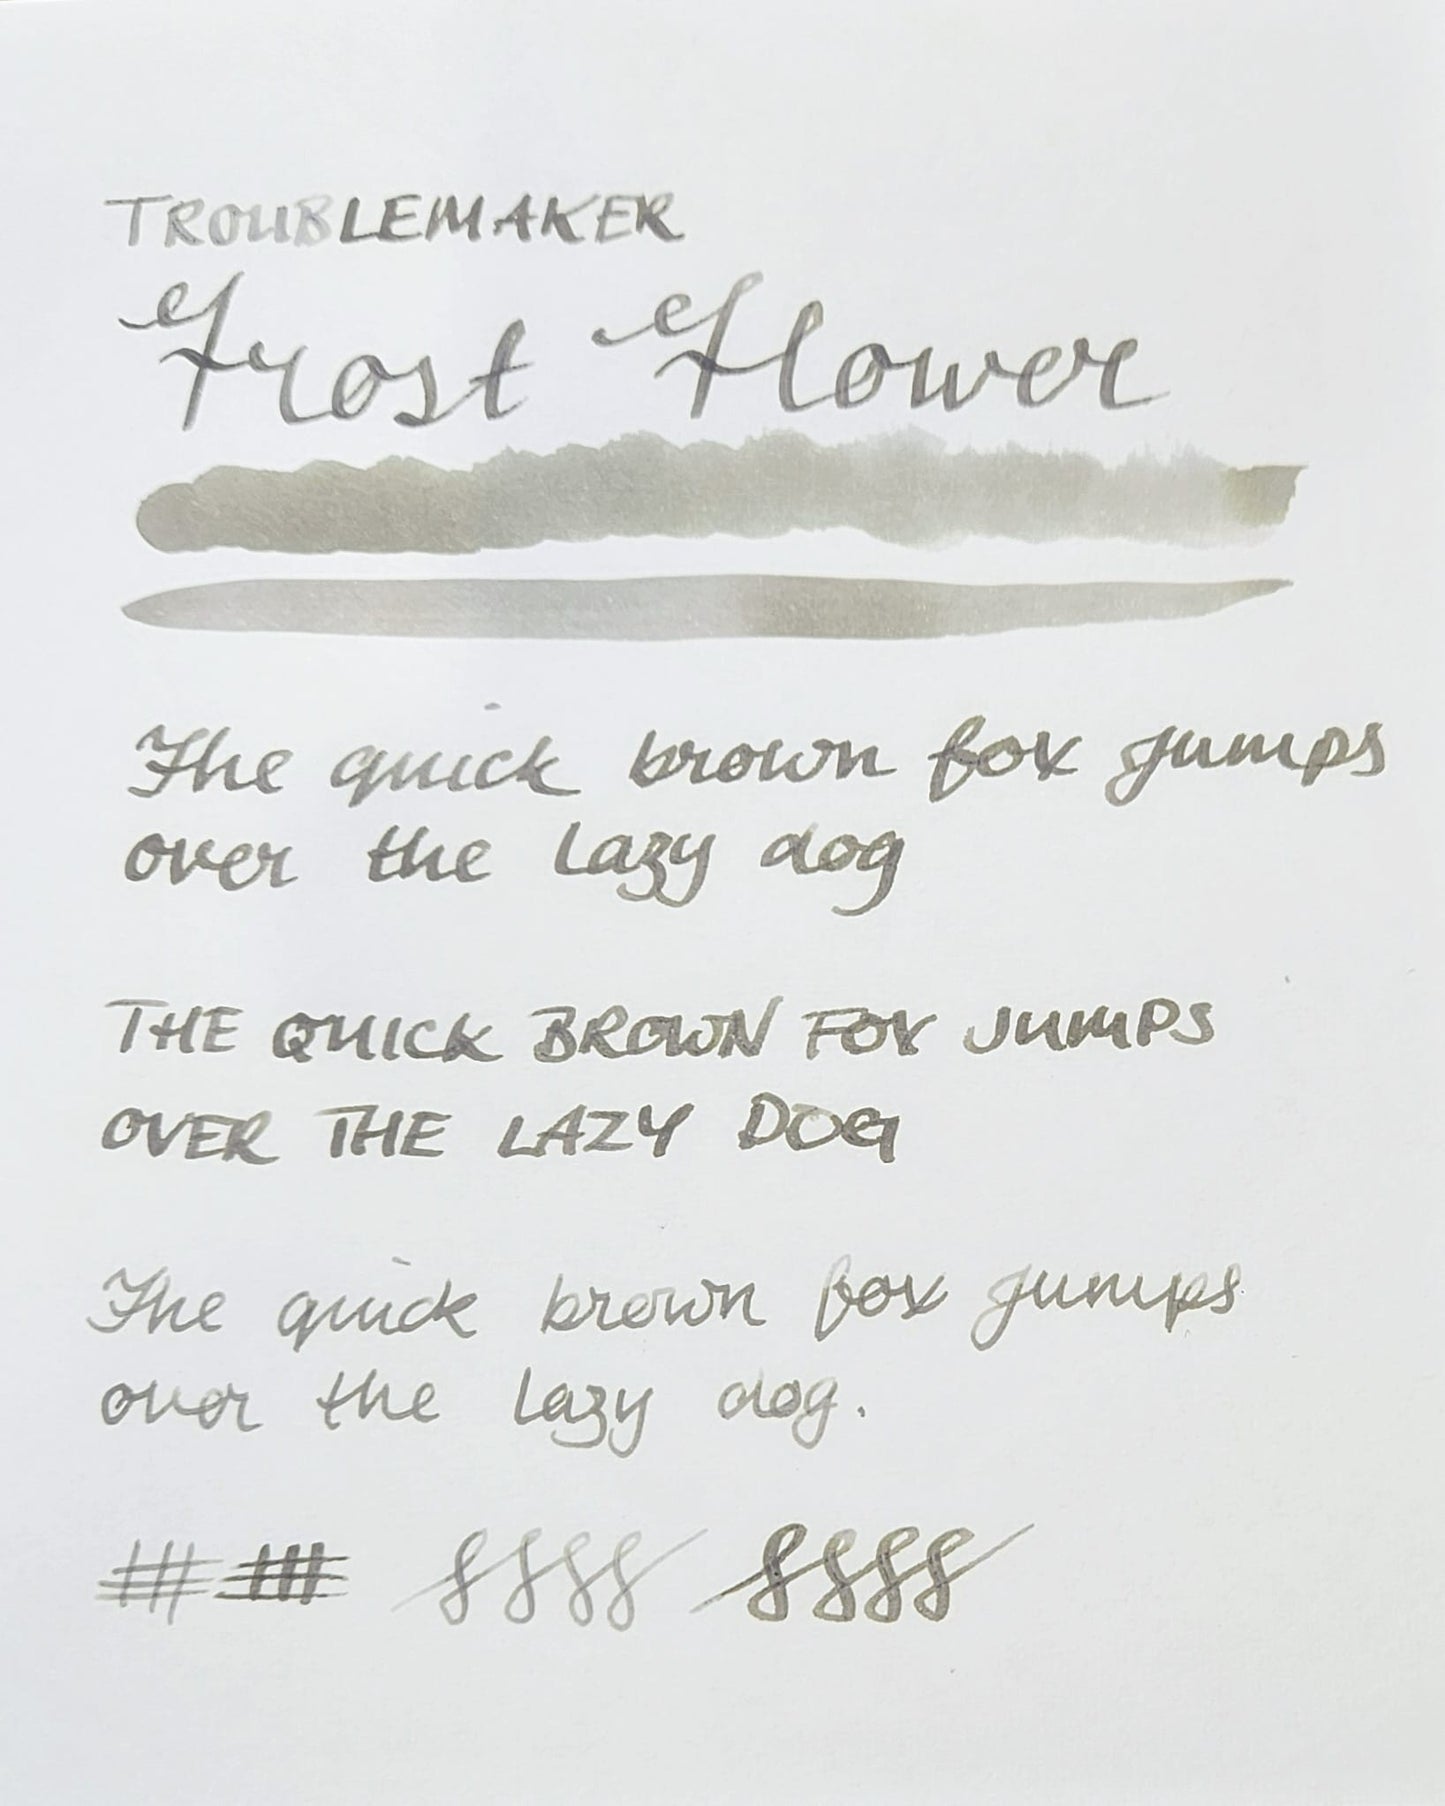 TROUBLEMAKER
Frost Flower
The quick brown fox jumps
over the lazy dog
THE QUICK BROWN FOX JUMPS
OVER THE LAZY DOG
The quick brown fox jumps
over the lazy dog.